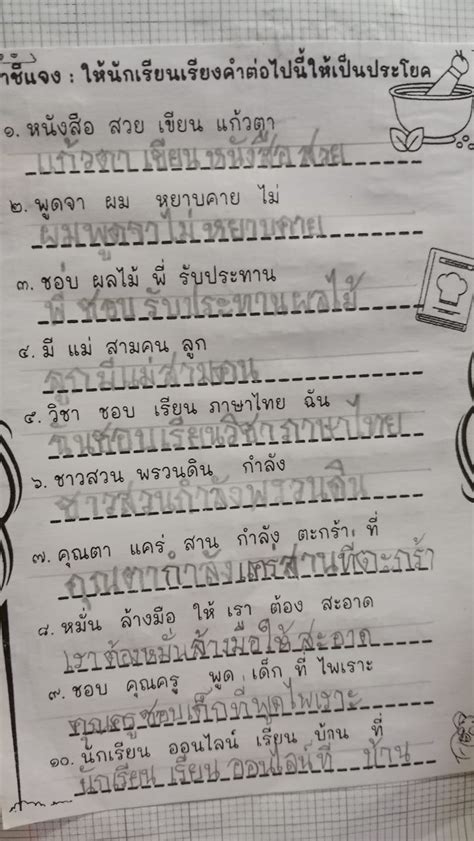 าชี้แจง : ให้นักเรียนเรียงคำต่อไปนี้ให้เป็นประโยค
๑. หนังสือ สวย เขียน แก้วตา
แก้วตา เขียน หนังสือ สวย
๒. พูดจา ผม หยาบคาย ไม่
ผมพูดจาไม่ หยาบคาย
๓. ชอบ ผลไม้ พี่ รับประทาน
พี่ ชอบ รับประทานผลไม้
๔. มี แม่ สามคน ลูก
ลูก มีแม่ สามคน
๕. วิชา ชอบ เรียน ภาษาไทย ฉัน
ฉันชอบเรียนวิชาภาษาไทย
๖. ชาวสวน พรวนดิน กำลัง
ชาวสวนกำลังพรวนดิน
๗. คุณตา แคร่ สาน กำลัง ตะกร้า ที่
คุณตากำลังแคร่สานที่ตะกร้า
๘. หมั่น ล้างมือ ให้ เรา ต้อง สะอาด
เราต้องหมั่นล้างมือให้ สะอาด
๙. ชอบ คุณครู พูด เด็ก ที่ ไพเราะ
คุณครูชอบเด็กที่พูดไพเราะ
๑๐. นักเรียน ออนไลน์ เรียน บ้าน ที่
นักเรียน เรียน ออนไลน์ ที่ บ้าน